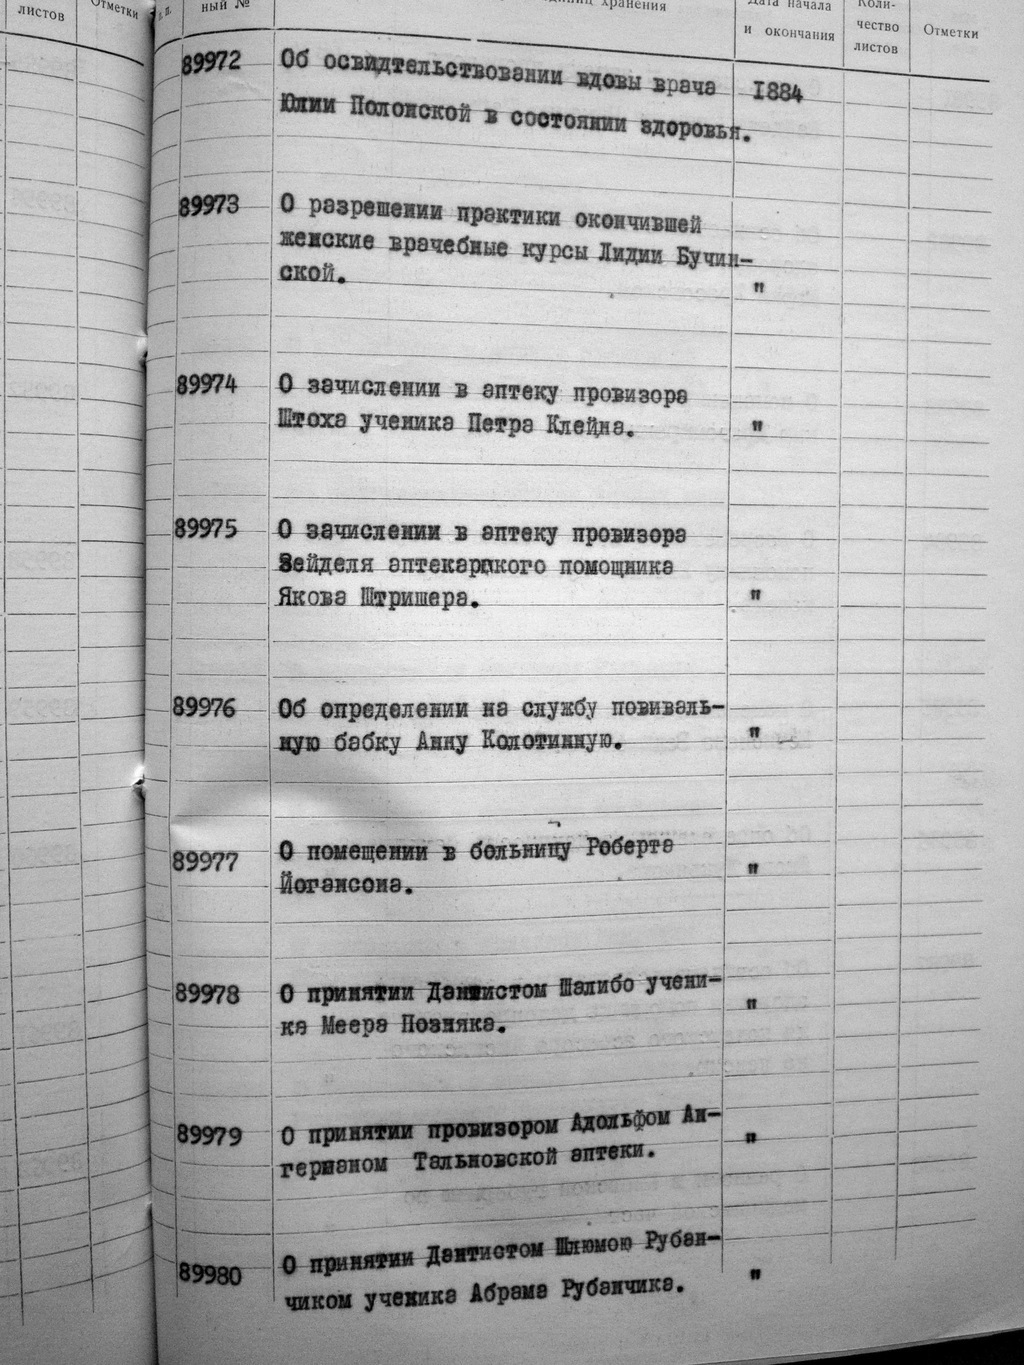 листов
Отметки
п. п.
ный №
единиц хранения
Дата начала
и окончания
Коли-
чество
листов
Отметки
89972
Об освидтельствовании вдовы врача
1884
Юлии Полонской в состоянии здоровья.
89973
О разрешении практики окончившей
женские врачебные курсы Лидии Бучин-
ской.
"
89974
О зачислении в аптеку провизора
Штоха ученика Петра Клейна.
"
89975
О зачислении в аптеку провизора
Зейделя аптекарского помощника
Якова Штришера.
"
89976
Об определении на службу повиваль-
ную бабку Анну Колотинную.
"
89977
О помещении в больницу Роберта
Йогансона.
"
89978
О принятии Дантистом Шалибо учени-
ка Меера Позняка.
"
89979
О принятии провизором Адольфом Ан-
германом Тальновской аптеки.
"
89980
О принятии Дантистом Шлюмою Рубан-
чиком ученика Абрама Рубанчика.
"